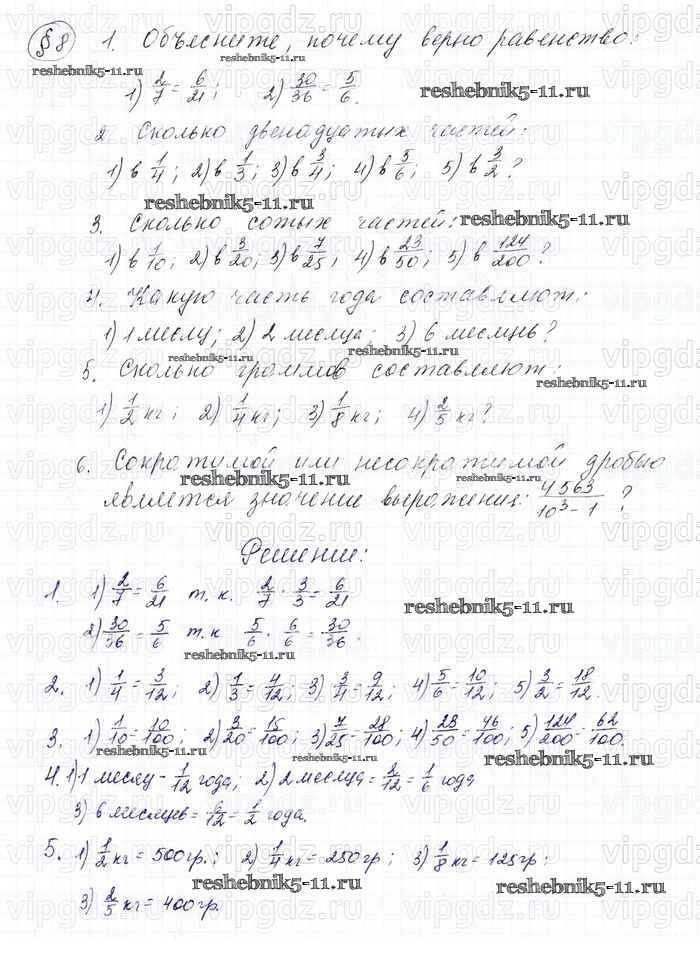 § 8 1. Объясните, почему верно равенство:
reshebnik5-11.ru reshebnik5-11.ru
1) 2/7 = 6/21; 2) 30/36 = 5/6. reshebnik5-11.ru
2. Сколько двенадцатых частей:
1) в 1/4; 2) в 1/3; 3) в 3/4; 4) в 5/6; 5) в 3/2?
reshebnik5-11.ru
3. Сколько сотых частей: reshebnik5-11.ru
1) в 1/10; 2) в 3/20; 3) в 7/25; 4) в 23/50; 5) в 124/200?
4. Какую часть года составляют:
1) 1 месяц; 2) 2 месяца; 3) 6 месяцев?
reshebnik5-11.ru reshebnik5-11.ru
5. Сколько граммов составляют:
reshebnik5-11.ru
1) 1/2 кг; 2) 1/4 кг; 3) 1/8 кг; 4) 2/5 кг?
6. Сократимой или несократимой дробью
reshebnik5-11.ru reshebnik5-11.ru
является значение выражения: 4563/10³-1 ?
Решение:
1. 1) 2/7 = 6/21 т.к. 2/7 · 3/3 = 6/21
reshebnik5-11.ru
2) 30/36 = 5/6 т.к 5/6 · 6/6 = 30/36.
reshebnik5-11.ru
2. 1) 1/4 = 3/12; 2) 1/3 = 4/12; 3) 3/4 = 9/12; 4) 5/6 = 10/12; 5) 3/2 = 18/12.
3. 1) 1/10 = 10/100; 2) 3/20 = 15/100; 3) 7/25 = 28/100; 4) 23/50 = 46/100; 5) 124/200 = 62/100.
reshebnik5-11.ru reshebnik5-11.ru reshebnik5-11.ru
4. 1) 1 месяц - 1/12 года; 2) 2 месяца = 2/12 = 1/6 года
3) 6 месяцев = 6/12 = 1/2 года.
5. 1) 1/2 кг = 500 гр.; 2) 1/4 кг = 250 гр; 3) 1/8 кг = 125 гр;
reshebnik5-11.ru reshebnik5-11.ru
3) 2/5 кг = 400 гр.
vipgdz.ru